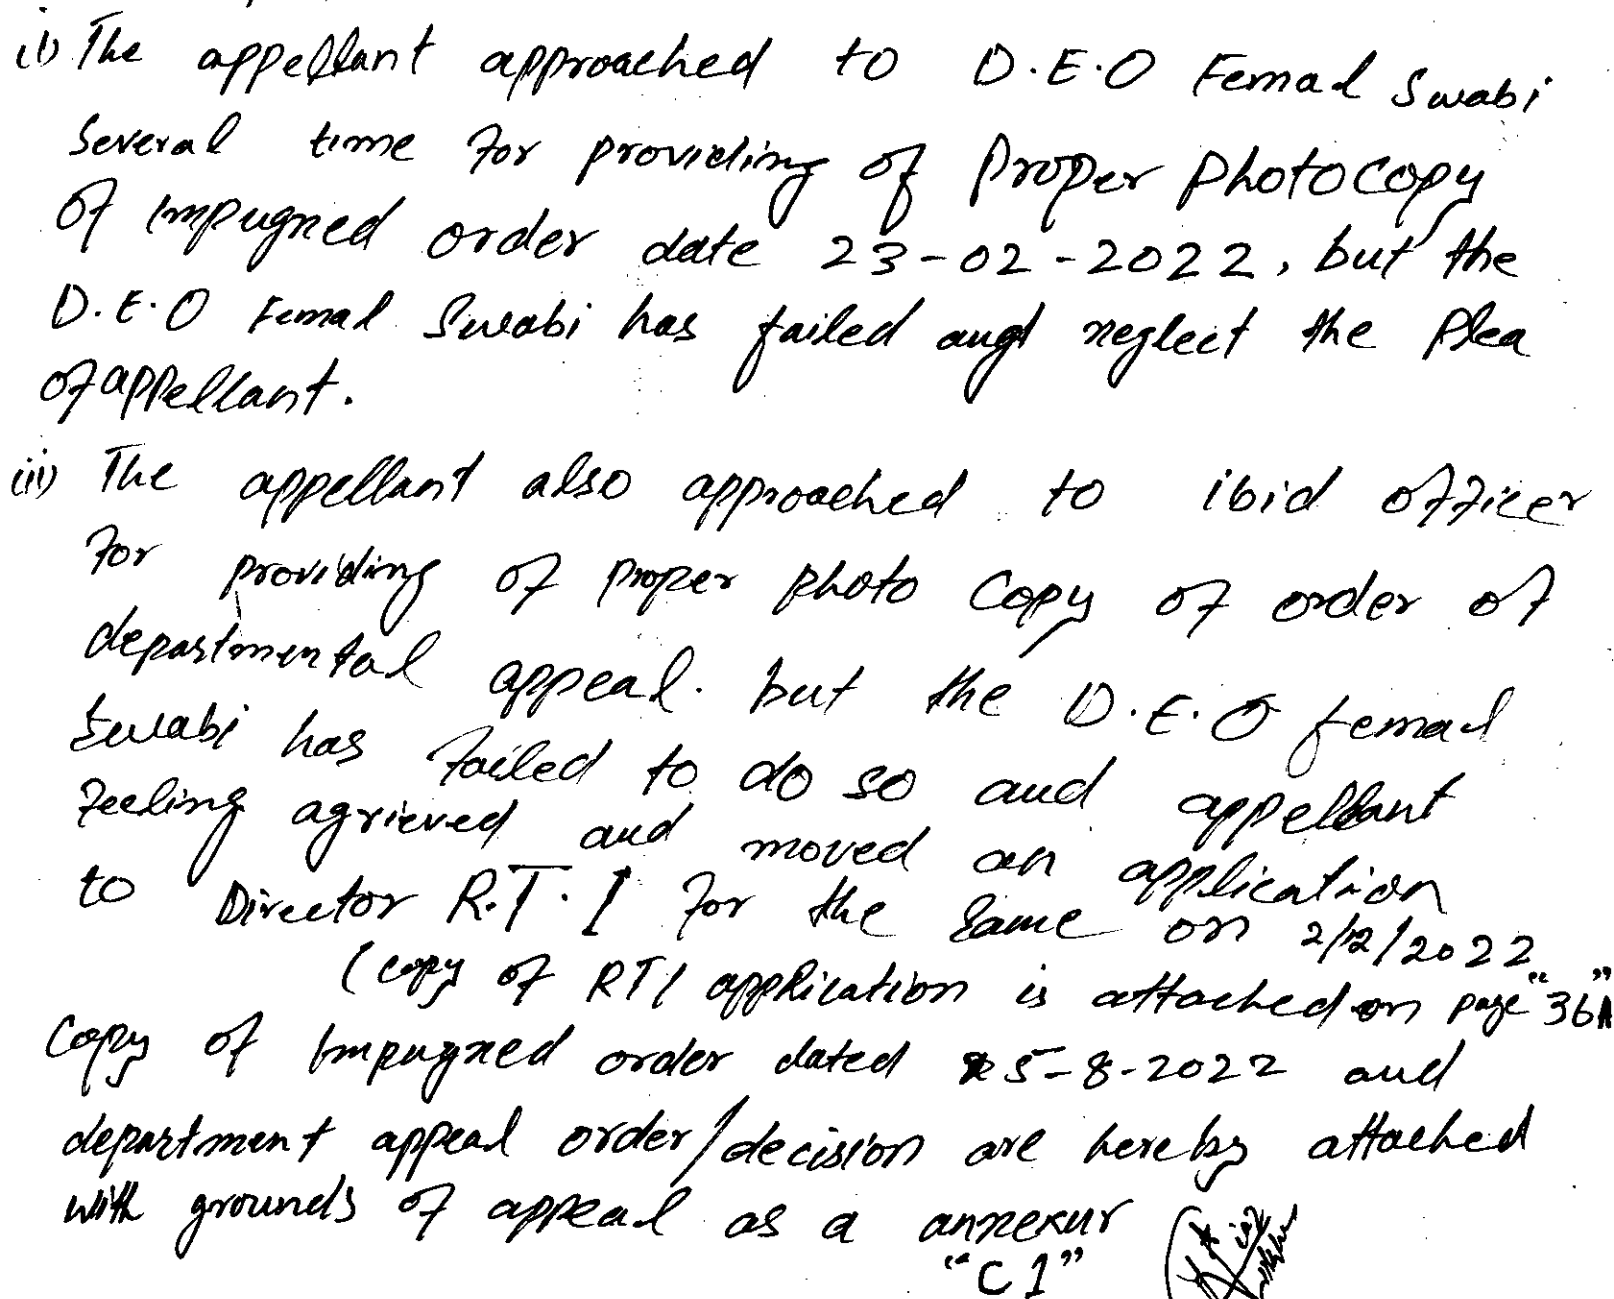 ii) The appellant approached to D.E.O Femal Swabi
Several time for providing of Proper Photocopy
of Impugned order date 23-02-2022, but the
D.E.O Femal Swabi has failed and neglect the Plea
of appellant.
iii) The appellant also approached to ibid officer
For providing of proper photo Copy of order of
departmental appeal. but the D.E.O femal
Swabi has failed to do so and appellant
Feeling agrieved and moved an application
to Director R.T.I for the Same on 2/12/2022
(copy of RTI application is attached on page "36A"
Copy of Impugned order dated 5-8-2022 and
department appeal order/decision are hereby attached
with grounds of appeal as a annexur
"C1"